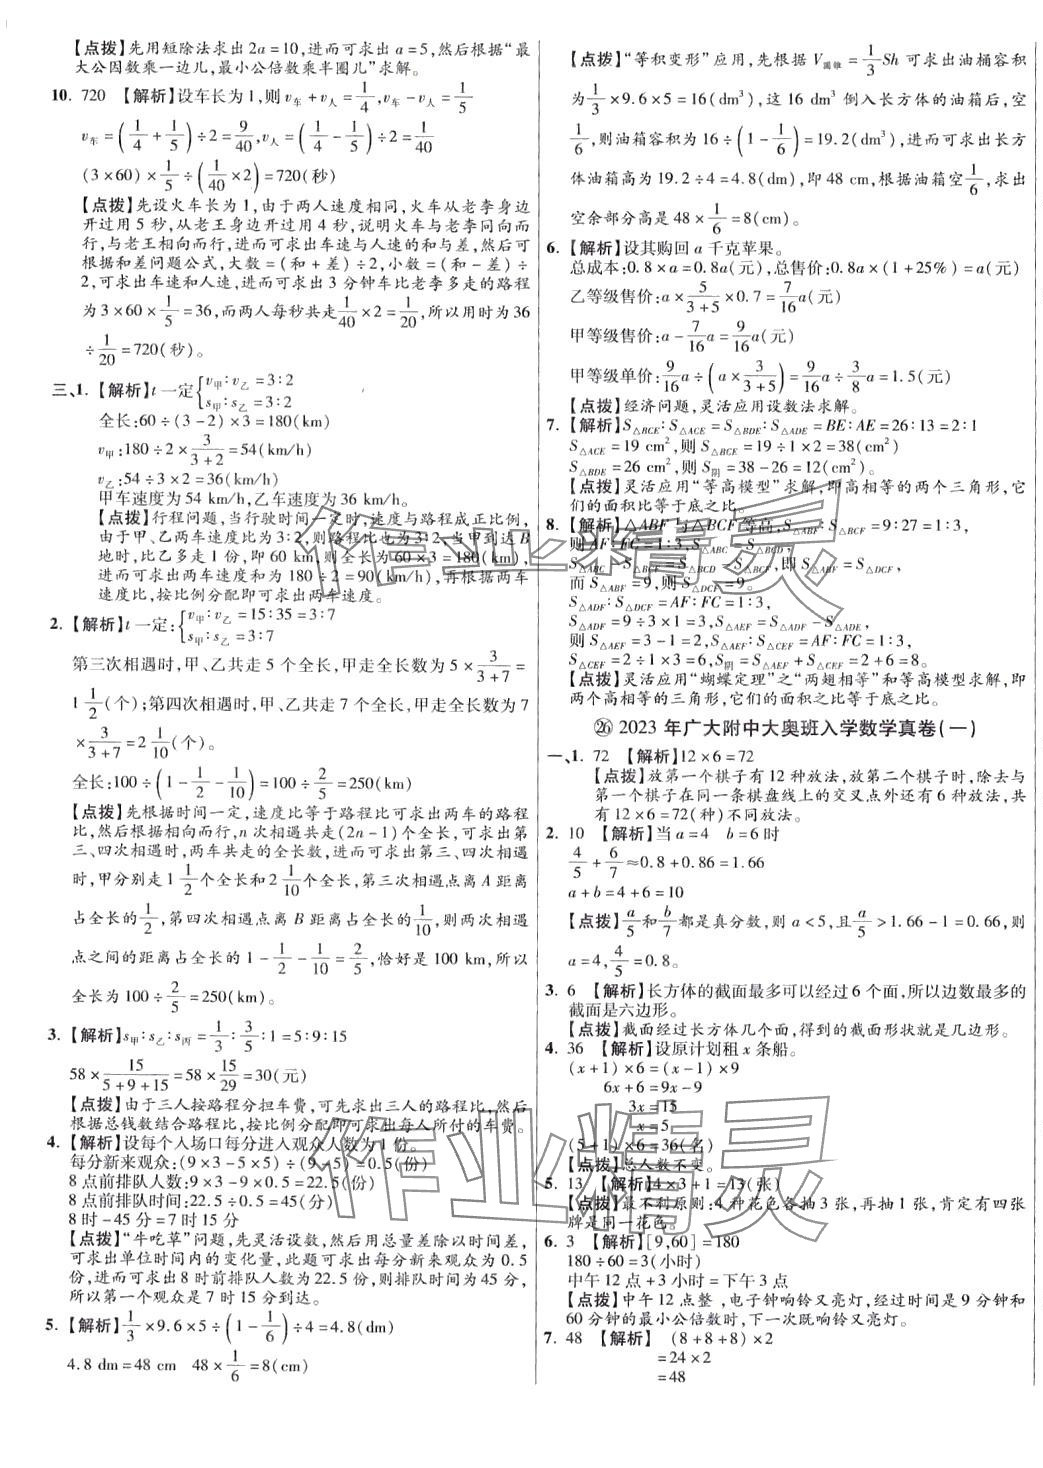 【点拨】先用短除法求出 2a=10,进而可求出 a=5,然后根据“最
大公因数乘一边儿,最小公倍数乘半圈儿”求解。
10. 720 【解析】设车长为 1,则 v车+v人=1/4,v车-v人=1/5
v车=(1/4+1/5)÷2=9/40,v人=(1/4-1/5)÷2=1/40
(3×60)×1/5÷(1/40×2)=720(秒)
【点拨】先设火车长为 1,由于两人速度相同,火车从老李身边
开过用 5 秒,从老王身边开过用 4 秒,说明火车与老李同向而
行,与老王相向而行,进而可求出车速与人速的和与差,然后可
根据和差问题公式,大数=(和+差)÷2,小数=(和-差)÷
2,可求出车速和人速,进而可求出 3 分钟车比老李多走的路程
为 3×60×1/5=36,而两人每秒共走1/40×2=1/20,所以用时为 36
÷1/20=720(秒)。
三、1. 【解析】t 一定{v甲:v乙=3:2
s甲:s乙=3:2
全长:60÷(3-2)×3=180(km)
v甲:180÷2×3/(3+2)=54(km/h)
v乙:54÷3×2=36(km/h)
甲车速度为 54 km/h,乙车速度为 36 km/h。
【点拨】行程问题,当行驶时间一定时,速度与路程成正比例,
由于甲、乙两车速度比为 3:2,则路程比也为 3:2,当甲到达 B
地时,比乙多走 1 份,即 60 km,则全长为 60×3=180(km),
进而可求出两车速度和为 180÷2=90(km/h),再根据两车
速度比,按比例分配即可求出两车速度。
2. 【解析】t 一定:{v甲:v乙=15:35=3:7
s甲:s乙=3:7
第三次相遇时,甲、乙共走 5 个全长,甲走一个全长数为 5×3/(3+7)=
1 1/2(个);第四次相遇时,甲、乙共走 7 个全长,甲走全长数为 7
×3/(3+7)=2 1/10(个)。
全长:100÷(1-1/2-1/10)=100÷2/5=250(km)
【点拨】先根据时间一定,速度比等于路程比可求出两车的路程
比,然后根据相向而行,n 次相遇共走(2n-1)个全长,可求出第
三、四次相遇时,两车共走的全长数,进而可求出第三、四次相遇
时,甲分别走 1 1/2个全长和 2 1/10个全长,第三次相遇点离 A 距离
占全长的1/2,第四次相遇点离 B 距离占全长的1/10,则两次相遇
点之间的距离占全长的 1-1/2-1/10=2/5,恰好是 100 km,所以
全长为 100÷2/5=250(km)。
3. 【解析】s甲:s乙:s丙=1/3:3/5:1=5:9:15
58×15/(5+9+15)=58×15/29=30(元)
【点拨】由于三人按路程分担车费,可先求出三人的路程比,然后
根据总钱数结合路程比,按比例分配即可求出每人所付的车费。
4. 【解析】设每个入场口每分进入观众人数为 1 份。
每分新来观众:(9×3-5×5)÷(9-5)=0.5(份)
8 点前排队人数:9×3-9×0.5=22.5(份)
8 点前排队时间:22.5÷0.5=45(分)
8 时-45 分=7 时 15 分
【点拨】“牛吃草”问题,先灵活设数,然后用总量差除以时间差,
可求出单位时间内的变化量,此题可求出每分新来观众为 0.5
份,进而可求出 8 时前排队人数为 22.5 份,则排队时间为 45 分,
所以第一个观众是 7 时 15 分到达。
5. 【解析】1/3×9.6×5÷(1-1/6)÷4=4.8(dm)
4.8 dm=48 cm 48×1/6=8(cm)
【点拨】“等积变形”应用,先根据 V圆锥=1/3Sh 可求出油桶容积
为1/3×9.6×5=16(dm³),这 16 dm³ 倒入长方体的油箱后,空
1/6,则油箱容积为 16÷(1-1/6)=19.2(dm³),进而可求出长方
体油箱高为 19.2÷4=4.8(dm),即 48 cm,根据油箱空1/6,求出
空余部分高是 48×1/6=8(cm)。
6. 【解析】设其购回 a 千克苹果。
总成本:0.8×a=0.8a(元),总售价:0.8a×(1+25%)=a(元)
乙等级售价:a×5/(3+5)×0.7=7/16a(元)
甲等级售价:a-7/16a=9/16a(元)
甲等级单价:9/16a÷(a×3/(3+5))=9/16a÷3/8a=1.5(元)
【点拨】经济问题,灵活应用设数法求解。
7. 【解析】S△BCE:S△ACE=S△BDE:S△ADE=BE:AE=26:13=2:1
S△ACE=19 cm²,则 S△BCE=19÷1×2=38(cm²)
S△BDE=26 cm²,则 S阴=38-26=12(cm²)。
【点拨】灵活应用“等高模型”求解,即高相等的两个三角形,它
们的面积比等于底之比。
8. 【解析】△ABF 与△BCF 等高,S△ABF:S△BCF=9:27=1:3,
则 AF:FC=1:3,S△ABC=S△BCD,
S△ABC-S△BCF=S△BCD-S△BCF,即 S△ABF=S△DCF,
而 S△ABF=9,则 S△DCF=9。
S△ADF:S△DCF=AF:FC=1:3,
S△ADF=9÷3×1=3,S△AEF=S△ADF-S△ADE,
则 S△AEF=3-1=2,S△AEF:S△CEF=AF:FC=1:3,
S△CEF=2÷1×3=6,S阴=S△AEF+S△CEF=2+6=8。
【点拨】灵活应用“蝴蝶定理”之“两翅相等”和等高模型求解,即
两个高相等的三角形,它们的面积之比等于底之比。
㉖ 2023 年广大附中大奥班入学数学真卷(一)
一、1. 72 【解析】12×6=72
【点拨】放第一个棋子有 12 种放法,放第二个棋子时,除去与
第一个棋子在同一条棋盘线上的交叉点外还有 6 种放法,共
有 12×6=72(种)不同放法。
2. 10 【解析】当 a=4 b=6 时
4/5+6/7≈0.8+0.86=1.66
a+b=4+6=10
【点拨】a/5和b/7都是真分数,则 a<5,且a/5>1.66-1=0.66,则
a=4,4/5=0.8。
3. 6 【解析】长方体的截面最多可以经过 6 个面,所以边数最多的
截面是六边形。
【点拨】截面经过长方体几个面,得到的截面形状就是几边形。
4. 36 【解析】设原计划租 x 条船。
(x+1)×6=(x-1)×9
6x+6=9x-9
3x=15
x=5
(5+1)×6=36(名)
【点拨】总人数不变。
5. 13 【解析】4×3+1=13(张)
【点拨】最不利原则:4 种花色各抽 3 张,再抽 1 张,肯定有四张
牌是同一花色。
6. 3 【解析】[9,60]=180
180÷60=3(小时)
中午 12 点+3 小时=下午 3 点
【点拨】中午 12 点整,电子钟响铃又亮灯,经过时间是 9 分钟和
60 分钟的最小公倍数时,下一次既响铃又亮灯。
7. 48 【解析】 (8+8+8)×2
=24×2
=48
作业精灵
作业精灵